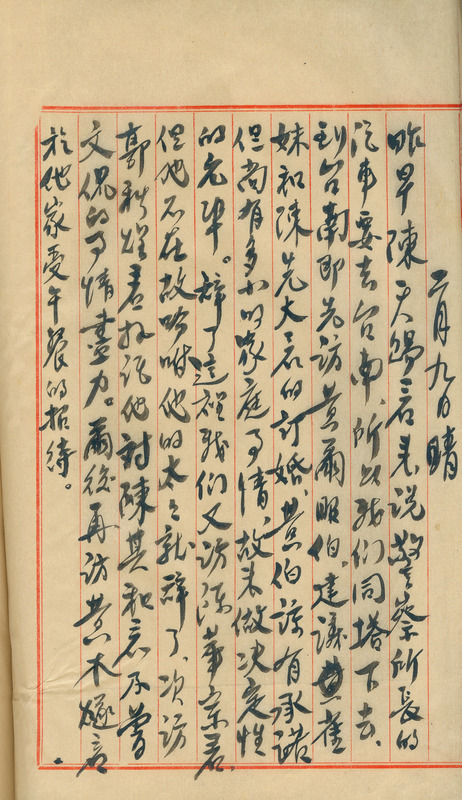 二月九日 晴
昨早陳天賜君来说警察所長的
汽車要去台南、所以我们同搭下去、
到台南即先访黄爾昭伯、建議雀
妹和陳先大君的訂婚、黄伯諒有承諾
但尚有多小的家庭的事情、故未做決定性
的允準。辞了這裡我们又访陈華宗君、
但他不在故吩咐他的太太就辞了、次访
郭秋煌君拜託他討陳其和君及曾
文侃的事情盡力。爾後再访黄木邃君
於他家受午餐的招待。